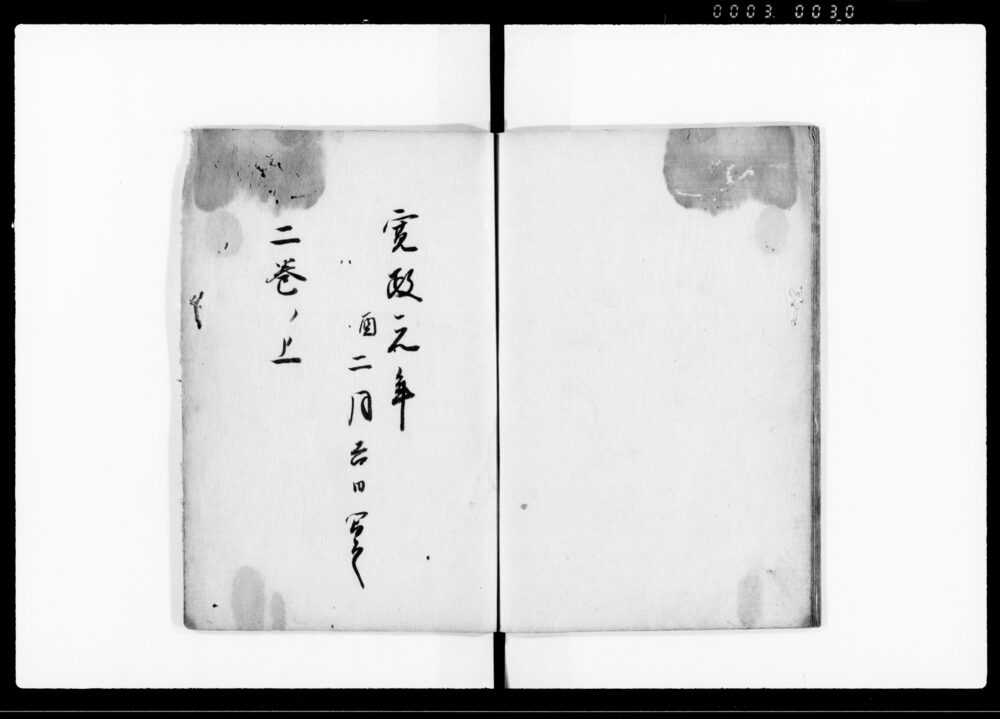 0003 0030
寛政元年
酉二月吉日写之
二巻ノ上